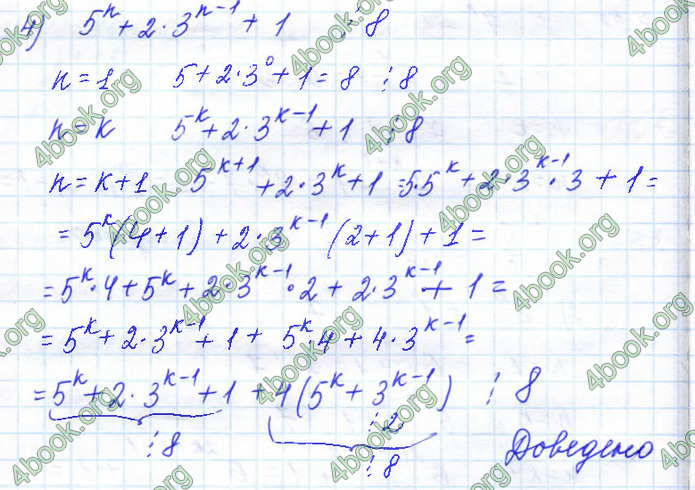 4) 5^n + 2·3^{n-1} + 1 ⋮ 8
n = 1 5 + 2·3^0 + 1 = 8 ⋮ 8
n = k 5^k + 2·3^{k-1} + 1 ⋮ 8
n = k+1 5^{k+1} + 2·3^k + 1 = 5·5^k + 2·3^{k-1}·3 + 1 =
= 5^k (4+1) + 2·3^{k-1} (2+1) + 1 =
= 5^k·4 + 5^k + 2·3^{k-1}·2 + 2·3^{k-1} + 1 =
= 5^k + 2·3^{k-1} + 1 + 5^k·4 + 4·3^{k-1} =
= 5^k + 2·3^{k-1} + 1 + 4(5^k + 3^{k-1}) ⋮ 8
⋮ 2
⋮ 8 ⋮ 8
Доведено
4book.org